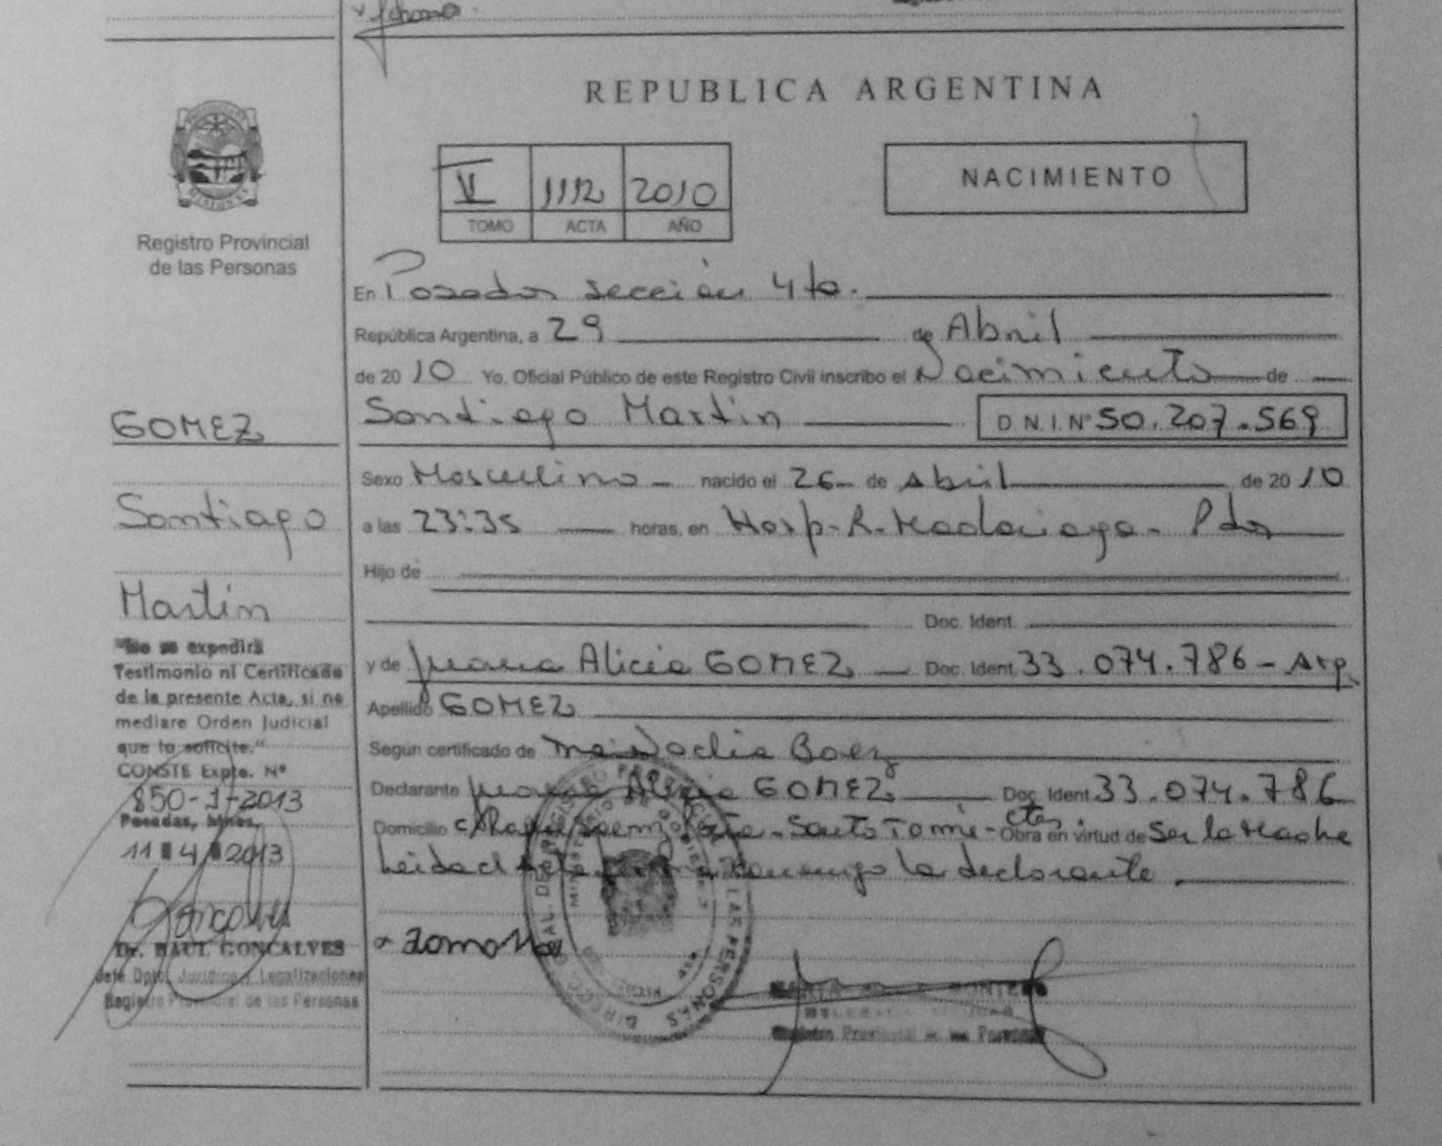 REPUBLICA ARGENTINA
MISIONES
Registro Provincial
de las Personas
V 1112 2010
TOMO ACTA AÑO
NACIMIENTO
En Posadas sección 4ta.
República Argentina, a 29 de Abril
de 2010 Yo, Oficial Público de este Registro Civil inscribo el Nacimiento de
Santiago Martin D.N.I. Nº 50.207.569
Sexo Masculino nacido el 26 de Abril de 2010
a las 23:35 horas, en Hosp. R. Madariaga - Pdas
Hijo de
Doc. Ident.
y de Juana Alicia GOMEZ Doc. Ident. 33.074.786 - Arg.
Apellido GOMEZ
Según certificado de Noelia Baez
Declarante Juana Alicia GOMEZ Doc. Ident 33.074.786
Domicilio Santo Tomé - Ctes Obra en virtud de Ser la Madre
Leida el Acta conmigo la declarante
GOMEZ
Santiago
Martin
"No se expedirá
Testimonio ni Certificado
de la presente Acta, si no
mediare Orden Judicial
que lo solicite."
CONSTE Expte. Nº
850-J-2013
Posadas, Mnes.
11 4 2013
Dr. RAUL GONCALVES
Jefe Dpto. Jurídico y Legalizaciones
Registro Provincial de las Personas
Registro Provincial de las Personas